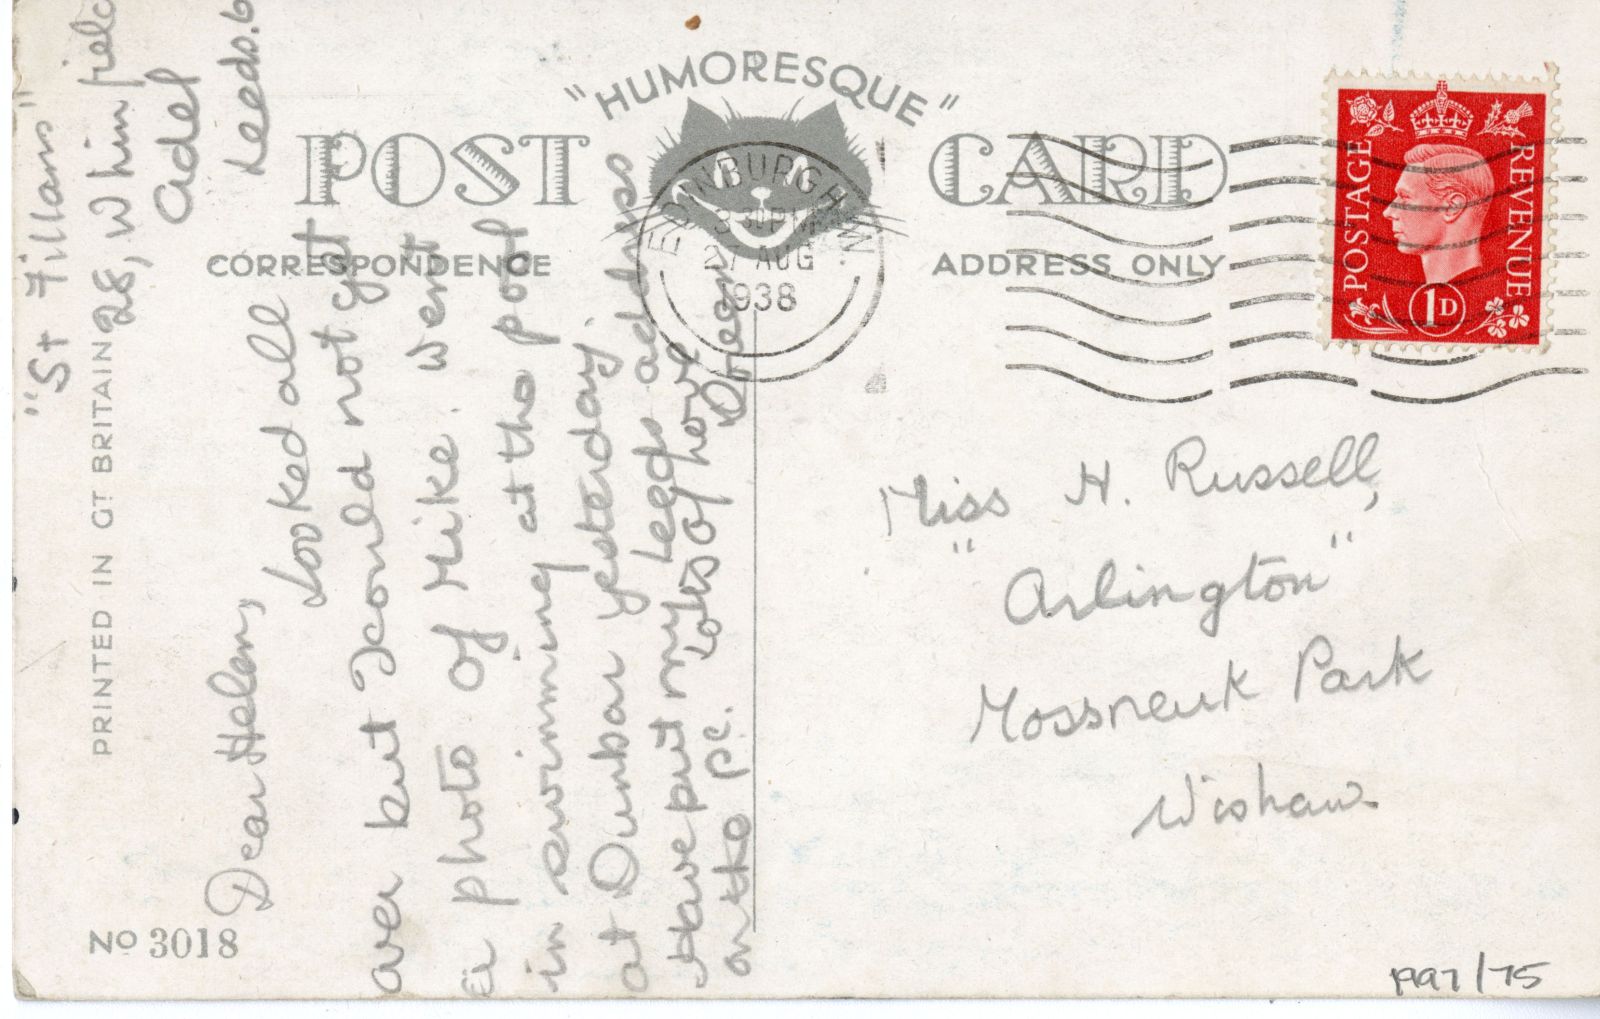 "HUMORESQUE"
POST CARD
CORRESPONDENCE
ADDRESS ONLY
PRINTED IN GT BRITAIN
No 3018
EDINBURGH
3 30 PM
27 AUG
1938
POSTAGE
REVENUE
1D
"St Fillans"
28, Whinfield
Adel
Leeds. 6
Dear Helen,
Looked all
over but I could not get
a photo of Mike. Went
in swimming at the pool
at Dunbar yesterday.
Have put my Leeds address
on the pc. Lots of love
Doreen
Miss H. Russell,
"Arlington"
Mossneuk Park
Wishaw
1997/75